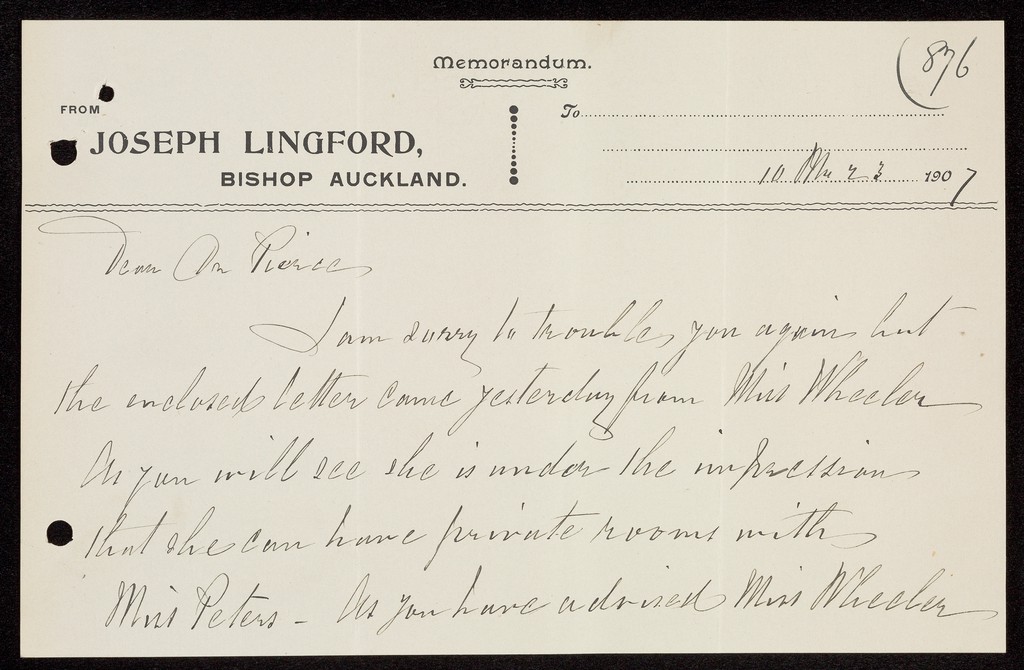 (876
Memorandum.
FROM
To
JOSEPH LINGFORD,
BISHOP AUCKLAND.
10 Mo 23 1907
Dear Dr Pierce
I am sorry to trouble you again but
the enclosed letter came yesterday from Miss Wheeler
As you will see she is under the impression
that she can have private rooms with
Miss Peters - As you have advised Miss Wheeler